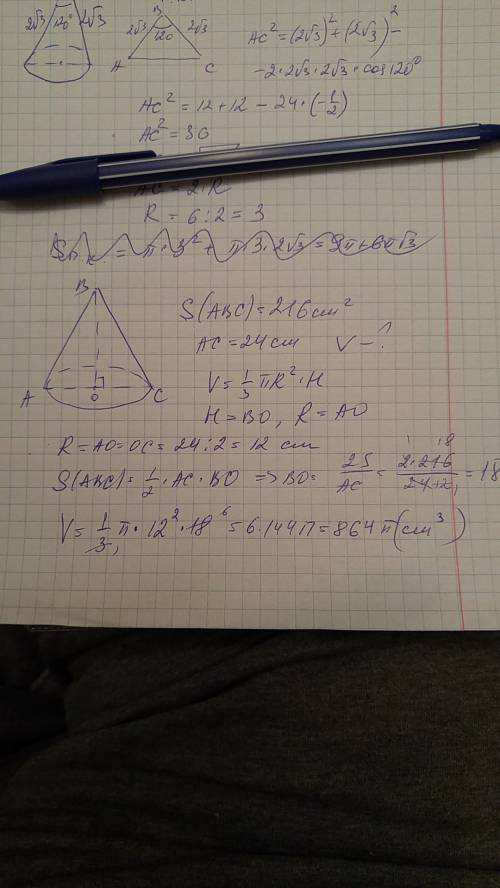 2√3 120° 2√3
B
2√3 120 2√3
A C
AC² = (2√3)² + (2√3)² -
- 2 · 2√3 · 2√3 · cos 120°
AC² = 12 + 12 - 24 · (-1/2)
AC² = 36
AC = 2 · R
R = 6 : 2 = 3
Sп.к. = π · 3² + π · 3 · 2√3 = 9π + 6π√3
B
A O C
S(ABC) = 216 cm²
AC = 24 cm V - ?
V = 1/3 πR² · H
H = BO, R = AO
R = AO = OC = 24 : 2 = 12 cm
S(ABC) = 1/2 · AC · BO => BO = 2S/AC = 2·216/24 = 18
V = 1/3 π · 12² · 18 = 6 · 144π = 864π (cm³)